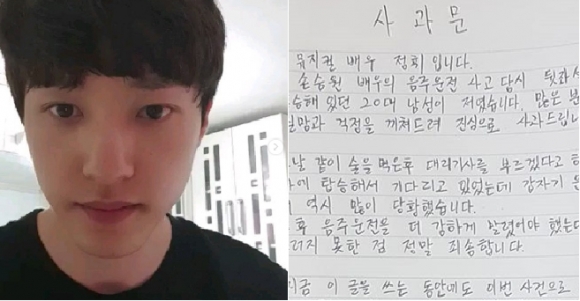 사과문
뮤지컬 배우 정휘입니다.
손승원 배우의 음주운전 사고 당시 뒷좌석
승해 있던 20대 남성이 저였습니다. 많은 분
실망과 걱정을 끼쳐드려 진심으로 사과드립니
날 같이 술을 먹은후 대리기사를 부르겠다고
에 탑승해서 기다리고 있었는데 갑자기
역시 많이 당황했습니다.
후 음주운전을 더 강하게 말렸어야 했는데
리지 못한 점 정말 죄송합니다.
지금 이 글을 쓰는 동안에도 이번 사건으로